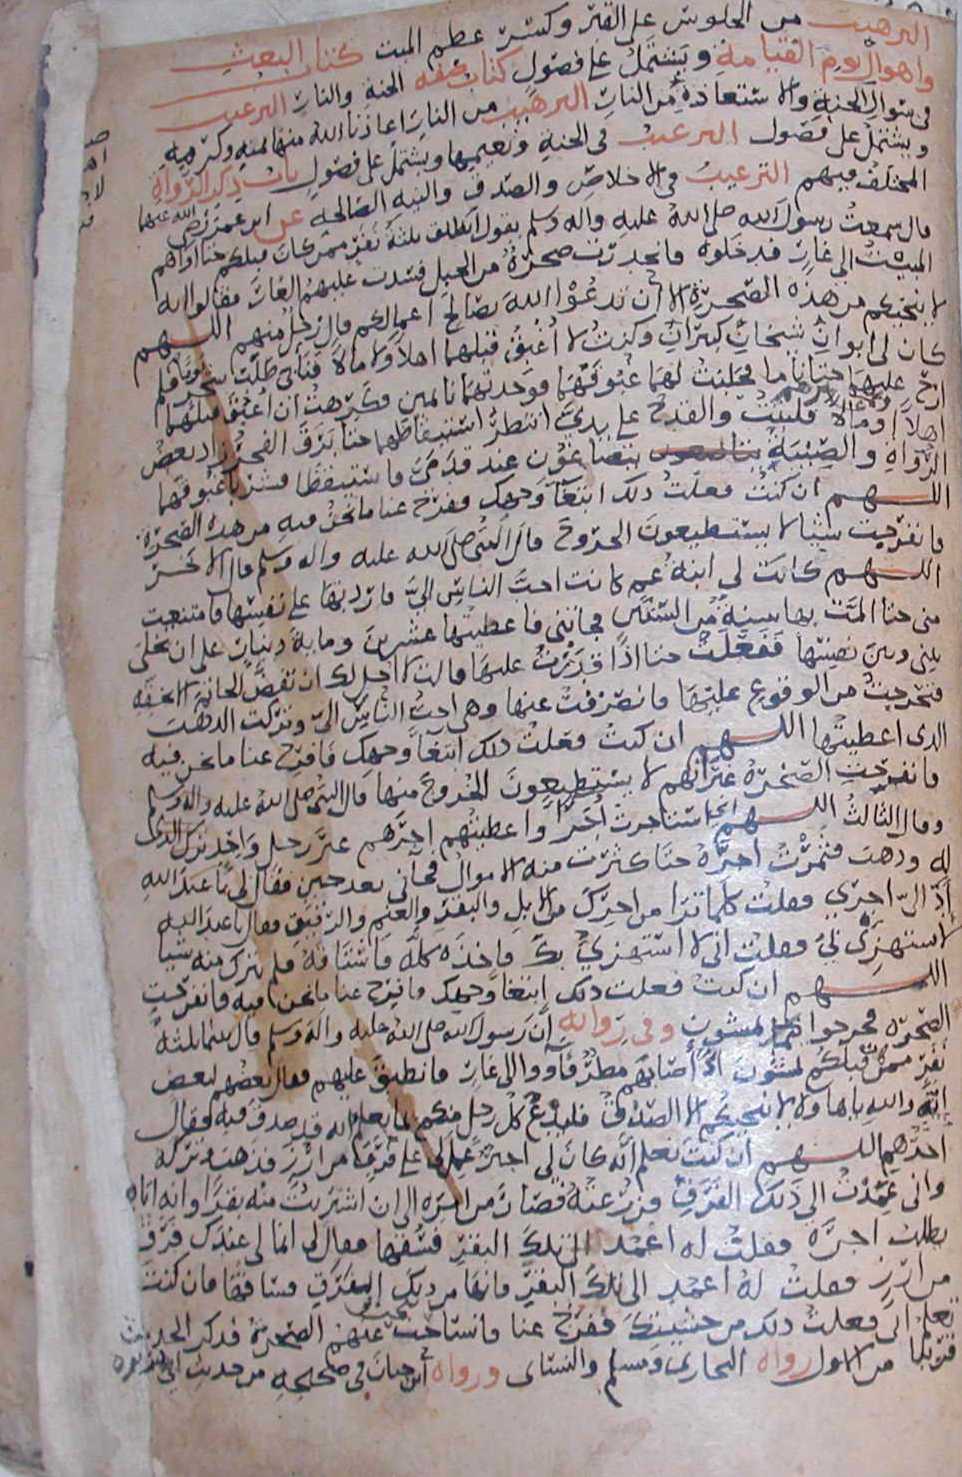 الترهيب من الجلوس على القبر وكسر عظم الميت كتاب البعث
واهوال يوم القيامة ويشتمل على فصول كتاب صفة الجنة والنار الترغيب
في سوال الجنة والاستعاذة من النار الترهيب من النار اعاذنا الله منها بمنه وكرمه
ويشتمل على فصول الترغيب في الجنة ونعيمها ويشتمل على فصول باب ذكر الرواة
المختلف فيهم الترغيب في الاخلاص والصدق والنية الصالحة عن ابن عمر رضي الله عنهما
قال سمعت رسول الله صلى الله عليه واله وسلم يقول انطلق ثلثة نفر ممن كان قبلكم حتا اواهم
المبيت الى غار فدخلوه فانحدرت صخرة من الجبل فسدت عليهم الغار فقالوا انه
لا ينجيكم من هذه الصخرة الا ان تدعوا الله بصالح اعمالكم قال رجل منهم اللهم
كان لي ابوان شيخان كبيران وكنت لا اغبق قبلهما اهلا ولا مالا فنأى طلب شجر يوما فلم
ارح عليهما حتا ناما فحلبت لهما غبوقهما فوجدتهما نائمين فكرهت ان اغبق قبلهما
اهلا او مالا فلبثت والقدح على يدي انتظر استيقاظهما حتا برق الفجر زاد بعض
الرواة والصبية يتضاغون عند قدمي فاستيقظا فشربا غبوقهما
اللهم ان كنت فعلت ذلك ابتغا وجهك ففرج عنا ما نحن فيه من هذه الصخرة
فانفرجت شيئا لا يستطيعون الخروج قال النبي صلى الله عليه واله وسلم قال الاخر
اللهم كانت لي ابنة عم كانت احب الناس الي فاردتها على نفسها فامتنعت
مني حتا المت بها سنة من السنين فجاتني فاعطيتها عشرين وماية دينار على ان تخلي
بيني وبين نفسها ففعلت حتا اذا قدرت عليها قالت لا احل لك ان تفض الخاتم الا بحقه
فتحرجت من الوقوع عليها فانصرفت عنها وهي احب الناس الي وتركت الذهب
الذي اعطيتها اللهم ان كنت فعلت ذلك ابتغا وجهك فافرج عنا ما نحن فيه
فانفرجت الصخرة غير انهم لا يستطيعون الخروج منها قال النبي صلى الله عليه واله وسلم
وقال الثالث اللهم اني استاجرت اجرا واعطيتهم اجرهم غير رجل واحد ترك الذي
له وذهب فثمرت اجره حتا كثرت منه الاموال فجاني بعد حين فقال لي يا عبد الله
اد الي اجري فقلت كلما ترا من اجرك من الابل والبقر والغنم والرقيق فقال يا عبد الله
لا تستهزي بي فقلت اني لا استهزي بك فاخذه كله فاستاقه فلم يترك منه شيا
اللهم ان كنت فعلت ذلك ابتغا وجهك فافرج عنا ما نحن فيه فانفرجت
الصخرة فخرجوا يمشون وفي رواية ان رسول الله صلى الله عليه واله وسلم قال بينما ثلثة
نفر ممن قبلكم يمشون اذ اصابهم مطر فآووا الى غار فانطبق عليهم فقال بعضهم لبعض
انه والله يا هاولا لا ينجيكم الا الصدق فليدع كل رجل منكم بما يعلم انه قد صدق فيه فقال
احدهم اللهم ان كنت تعلم انه كان لي اجير عمل لي على فرق من ارز فذهب وتركه
واني عمدت الى ذلك الفرق فزرعته فصار من امره الى ان اشتريت منه بقرا وانه اتاني
يطلب اجره فقلت له اعمد الى تلك البقر فسقها فقال لي انما لي عندك فرق
من ارز فقلت له اعمد الى تلك البقر فانها من ذلك الفرق فساقها فان كنت
تعلم اني فعلت ذلك من خشيتك ففرج عنا فانساحت عنهم الصخرة فذكر الحديث
قريبا من الاول رواه البخاري ومسلم والنساى ورواه ابن حبان في صحيحه من حديث ابي هريرة